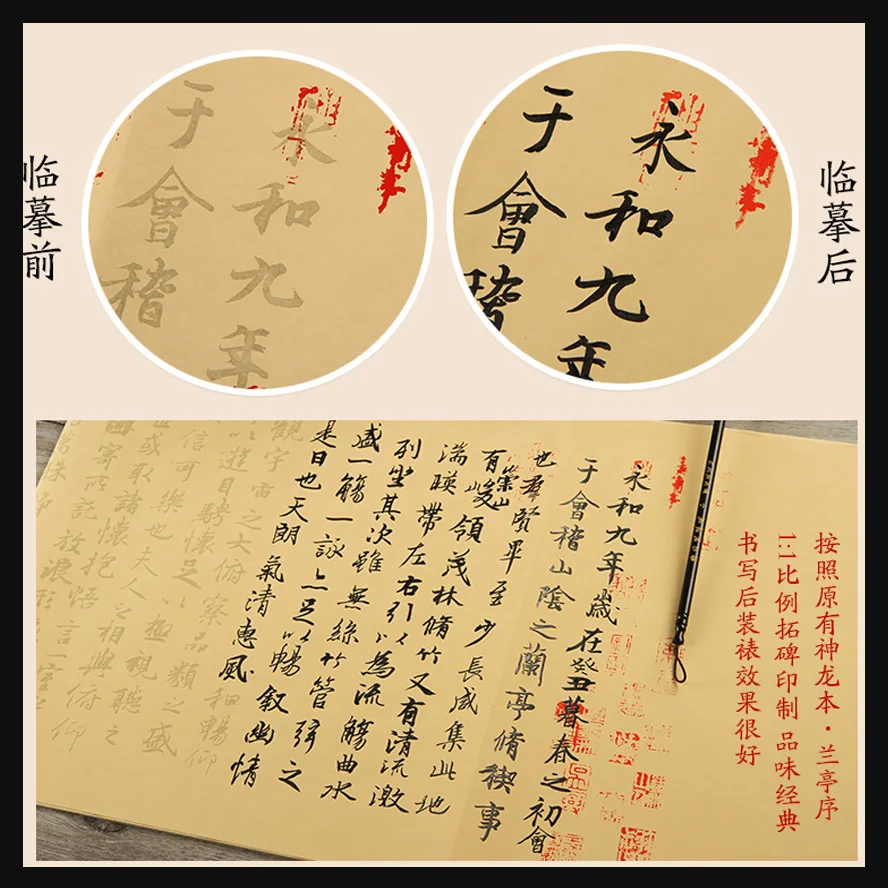 临摹前
永和九年
于會稽
永和九年
于會稽
临摹后
按照原有神龙本·兰亭序
1:1比例拓碑印制 品味经典
书写后装裱效果很好
永和九年歲在癸丑暮春之初會
于會稽山陰之蘭亭脩稧事
也羣賢畢至少長咸集此地
有崇山峻領茂林脩竹又有清流激
湍暎帶左右引以為流觴曲水
列坐其次雖無絲竹管弦之
盛一觴一詠亦足以暢叙幽情
是日也天朗氣清惠風和暢仰
觀宇宙之大俯察品類之盛
以遊目騁懷足以極視聽之
信可樂也夫人之相與俯仰
或取諸懷抱悟言一室
因寄所託放浪形